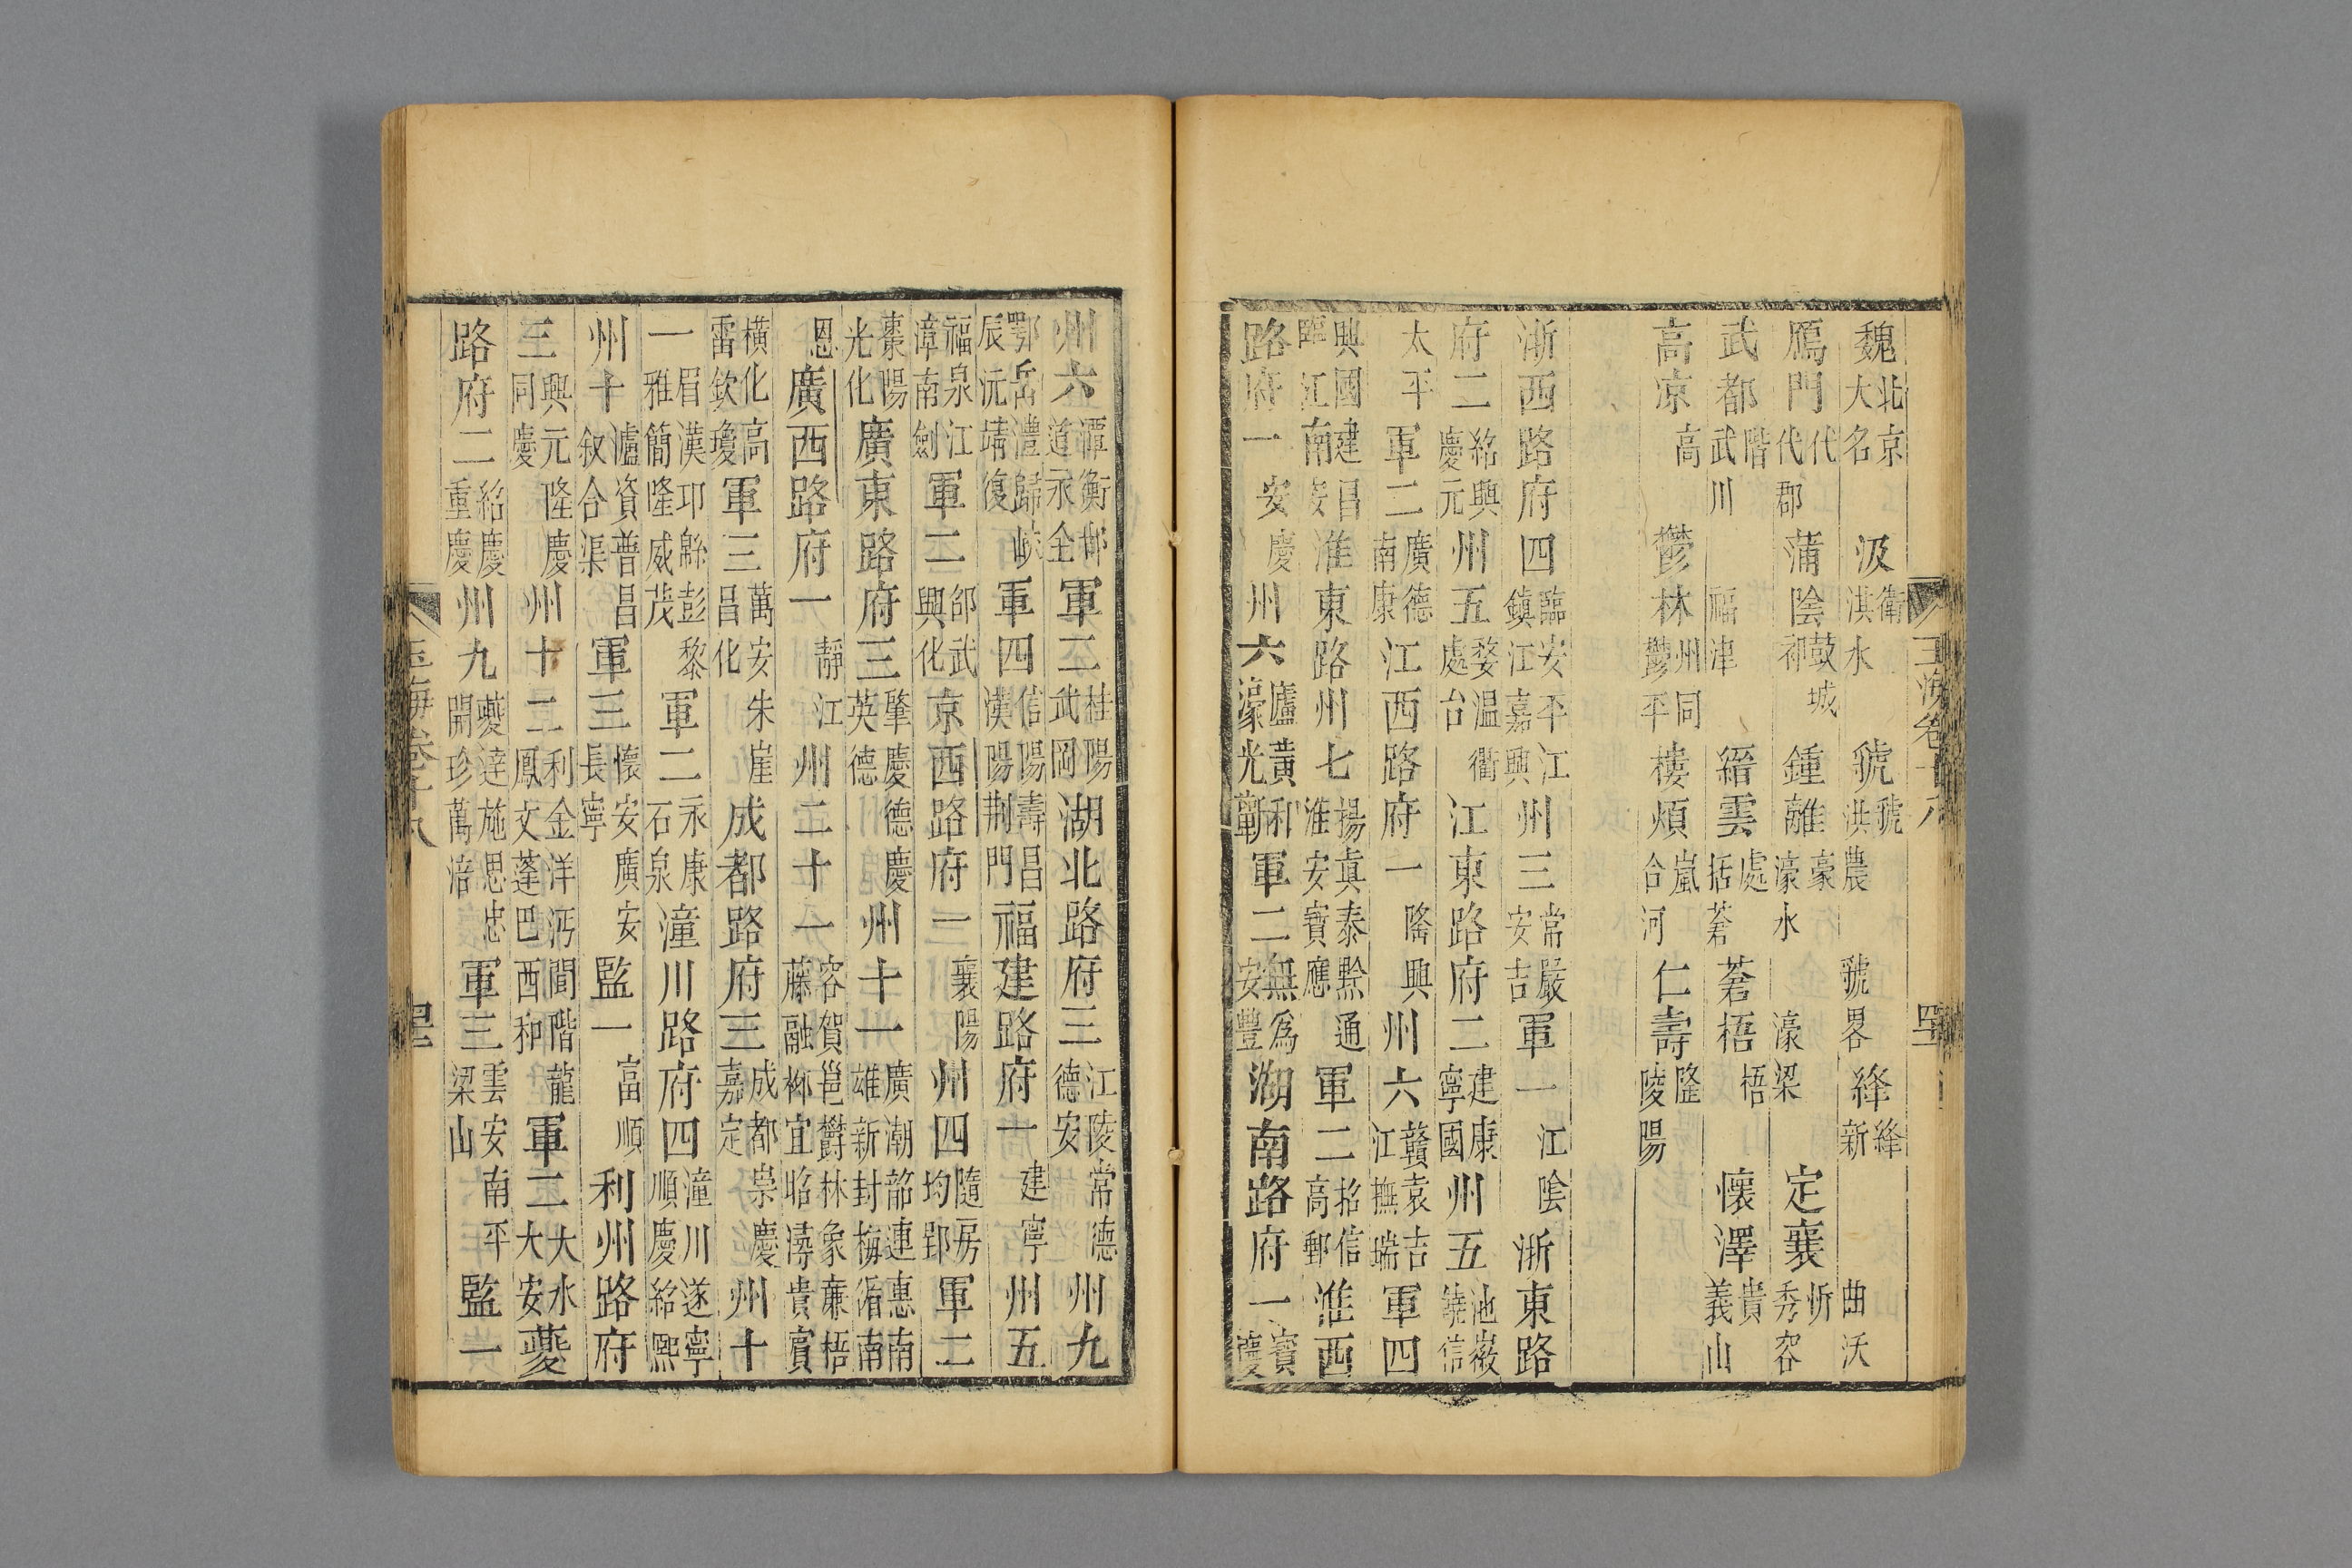 魏北京大名 汲衛淇水 虢虢洪農虢畧 絳絳新曲沃
鴈門代代郡 蒲陰鼓城祁 鍾離豪濠水濠梁 定襄忻秀容
武都階武川福津 縉雲處括蒼 蒼梧梧 懷澤貴義山
高凉高 鬱林州同鬱平 樓煩嵐合河 仁壽隆陵陽
浙西路府四臨安平江鎮江嘉興州三常嚴安吉軍一江陰浙東路
府二紹興慶元州五婺温衢處台江東路府二建康寧國州五池徽饒信
太平軍二廣德南康江西路府一隆興州六贛袁吉江撫瑞軍四
興國建昌臨江南安淮東路州七揚真泰黔通淮安寶應軍二招信高郵淮西
路府一安慶州六廬黄和濠光蘄軍二無爲安豐湖南路府一寶慶
州六潭衡郴道永全軍二桂陽武岡湖北路府三江陵常德德安州九
鄂岳澧歸峽辰沅靖復軍四信陽壽昌漢陽荆門福建路府一建寧州五
福泉汀漳南劍軍二邵武興化京西路府一襄陽州四隨房均郢軍二
棗陽光化廣東路府三肇慶德慶英德州十一廣潮韶連惠南雄新封梅循南
恩廣西路府一靜江州二十一容賀邕欝林象亷梧藤融栁宜昭潯貴賓
横化高雷欽瓊軍三萬安朱崖昌化成都路府三成都崇慶嘉定州十
一眉漢邛緜彭黎雅簡隆威茂軍二永康石泉潼川路府四潼川遂寧順慶紹熙
州十瀘資普昌叙合渠軍三懷安廣安長寧監一富順利州路府
三興元隆慶同慶州十二利金洋沔閬階龍鳳文蓬巴西和軍二大安大水夔
路府二紹慶重慶州九夔達施思忠開珍萬涪軍三雲安南平梁山監一
玉海卷十八